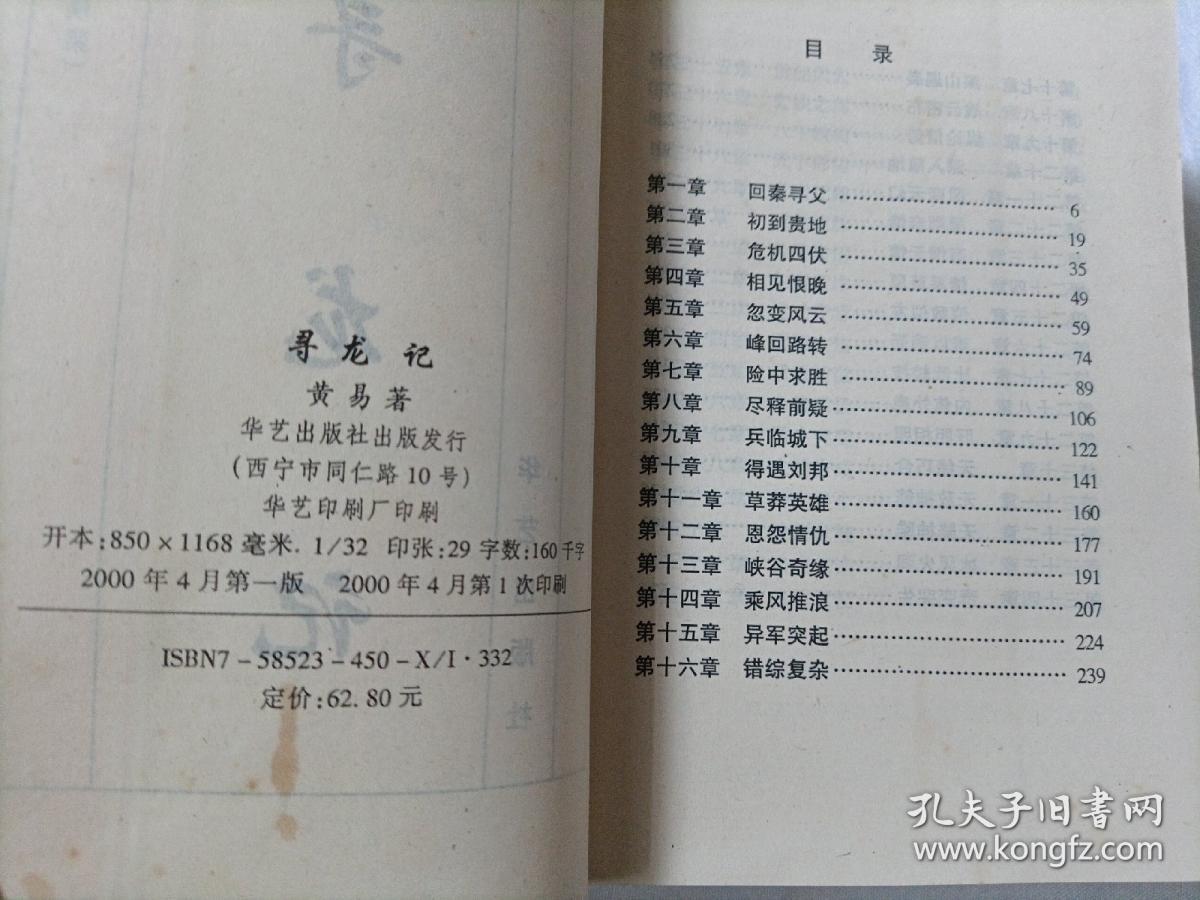 寻龙记
黄易著
华艺出版社出版发行
(西宁市同仁路10号)
华艺印刷厂印刷
开本:850×1168毫米.1/32 印张:29 字数:160千字
2000年4月第一版 2000年4月第1次印刷
ISBN7-58523-450-X/I·332
定价:62.80元
目录
第一章 回秦寻父 6
第二章 初到贵地 19
第三章 危机四伏 35
第四章 相见恨晚 49
第五章 忽变风云 59
第六章 峰回路转 74
第七章 险中求胜 89
第八章 尽释前疑 106
第九章 兵临城下 122
第十章 得遇刘邦 141
第十一章 草莽英雄 160
第十二章 恩怨情仇 177
第十三章 峡谷奇缘 191
第十四章 乘风推浪 207
第十五章 异军突起 224
第十六章 错综复杂 239
孔夫子旧书网
www.kongfz.com